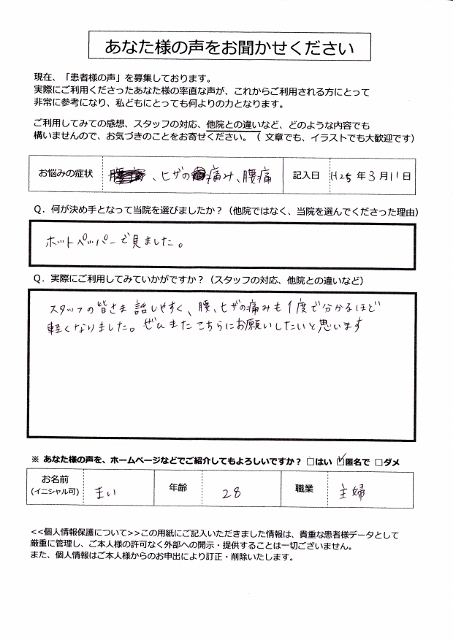 あなた様の声をお聞かせください
現在、「患者様の声」を募集しております。
実際にご利用くださったあなた様の率直な声が、これからご利用される方にとって
非常に参考になり、私どもにとっても何よりの力となります。
ご利用してみての感想、スタッフの対応、他院との違いなど、どのような内容でも
構いませんので、お気づきのことをお寄せください。（ 文章でも、イラストでも大歓迎です）
お悩みの症状 、ヒザの痛み、腰痛 記入日 H25年3月11日
Q．何が決め手となって当院を選びましたか？（他院ではなく、当院を選んでくださった理由）
ホットペッパーで見ました。
Q．実際にご利用してみていかがですか？（スタッフの対応、他院との違いなど）
スタッフの皆さま話しやすく、腰、ヒザの痛みも1度で分かるほど
軽くなりました。ぜひまたこちらにお願いしたいと思います
※ あなた様の声を、ホームページなどでご紹介してもよろしいですか？ □はい ☑匿名で □ダメ
お名前 まい 年齢 28 職業 主婦
(イニシャル可)
<<個人情報保護について>>この用紙にご記入いただきました情報は、貴重な患者様データとして
厳重に管理し、ご本人様の許可なく外部への開示・提供することは一切ございません。
また、個人情報はご本人様からのお申出により訂正・削除いたします。